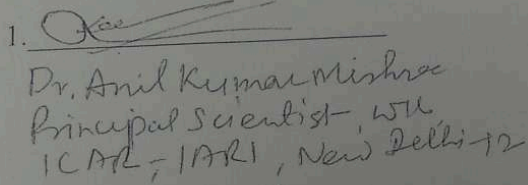 1.
Dr. Anil Kumar Mishra
Principal Scientist, WTC
ICAR-IARI, New Delhi-12